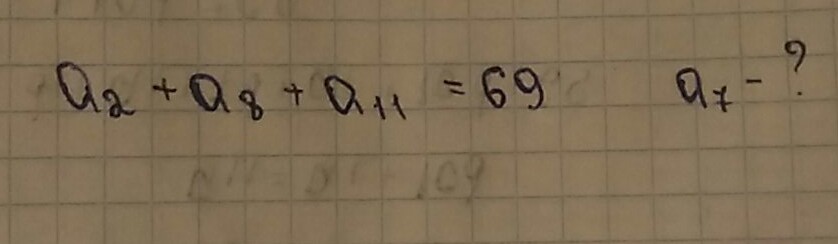 a₂ + a₈ + a₁₁ = 69 a₇ - ?